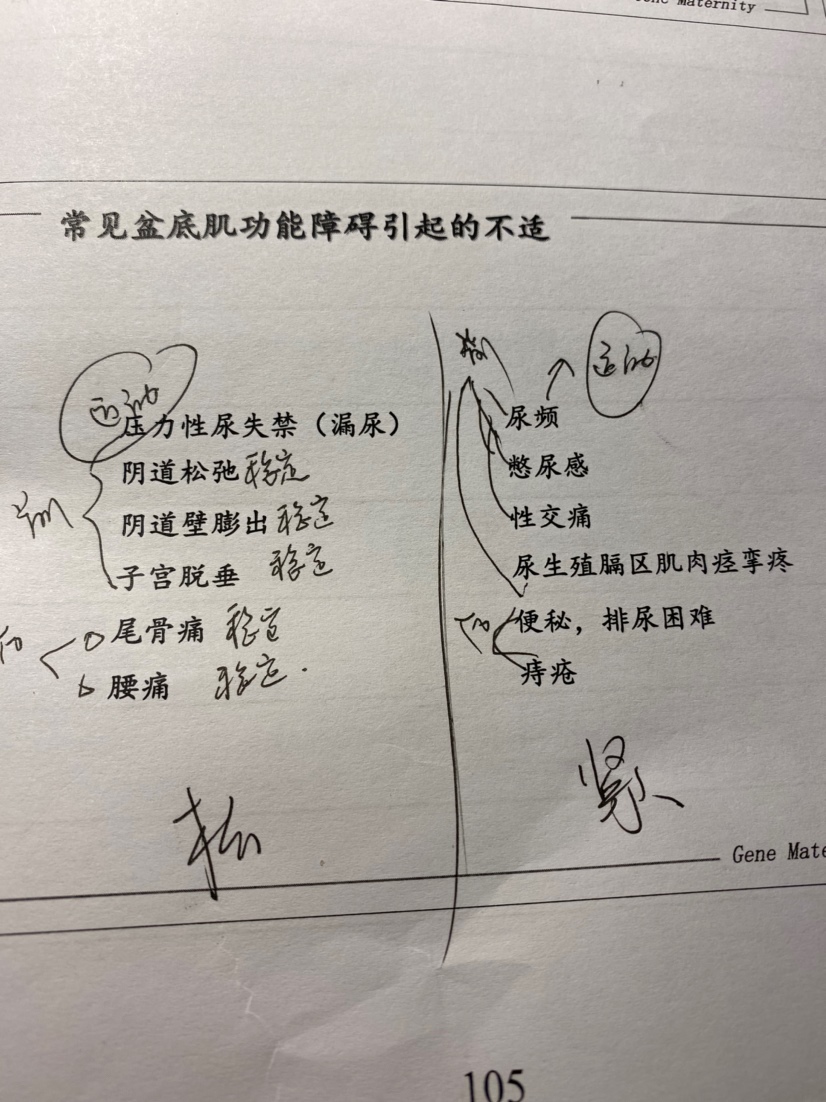 Gene Maternity
常见盆底肌功能障碍引起的不适
运动
压力性尿失禁（漏尿）
阴道松弛 稳定
阴道壁膨出 稳定
子宫脱垂 稳定
前
尾骨痛 稳定
腰痛 稳定
后
松
运动
尿频
憋尿感
性交痛
尿生殖膈区肌肉痉挛疼
便秘，排尿困难
痔疮
后
紧
Gene Mate
105